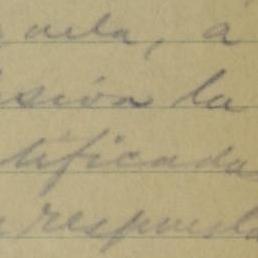 uela, á
esión la
tificada
respuesta